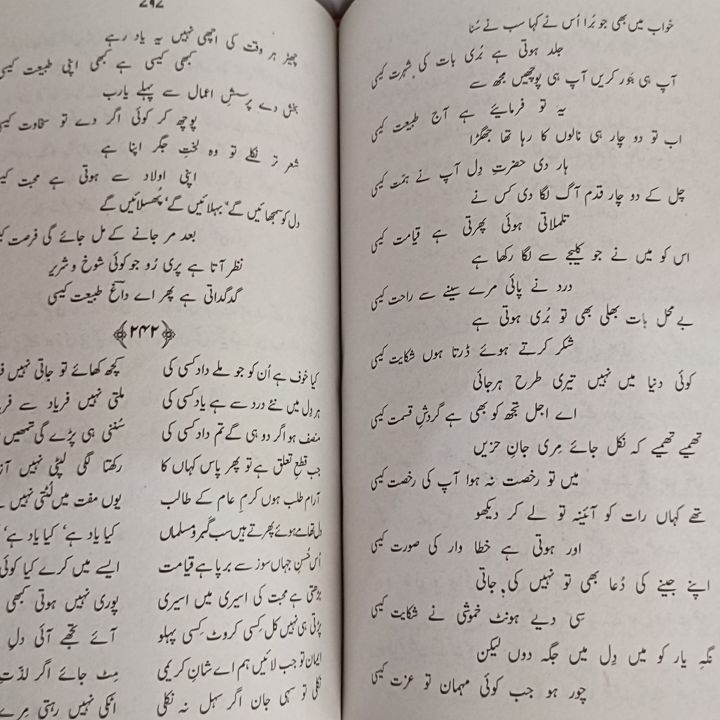 خواب میں بھی جو بُرا اُس نے کہا سب نے سُنا
جلد ہوتی ہے بُری بات کی شہرت کیسی
آپ ہی جَور کریں آپ ہی پوچھیں مجھ سے
یہ تو فرمایئے ہے آج طبیعت کیسی
اب تو دو چار ہی نالوں کا رہا تھا جھگڑا
ہار دی حضرتِ دِل آپ نے ہمت کیسی
چل کے دو چار قدم آگ لگا دی کس نے
تلملاتی ہوئی پھرتی ہے قیامت کیسی
اس کو میں نے جو کلیجے سے لگا رکھا ہے
درد نے پائی مرے سینے سے راحت کیسی
بے محل بات بھلی بھی تو بُری ہوتی ہے
شکر کرتے ہوئے ڈرتا ہوں شکایت کیسی
کوئی دنیا میں نہیں تیری طرح ہرجائی
اے اجل تجھ کو بھی ہے گردشِ قسمت کیسی
تھمیے تھمیے کہ نکل جائے مِری جانِ حزیں
میں تو رخصت نہ ہوا آپ کی رخصت کیسی
تھے کہاں رات کو آئینہ تو لے کر دیکھو
اور ہوتی ہے خطا وار کی صورت کیسی
اپنے جینے کی دُعا بھی تو نہیں کی جاتی
سِی دیے ہونٹ خموشی نے شکایت کیسی
نگہِ یار کو میں دِل میں جگہ دوں لیکن
چور ہو جب کوئی مہمان تو عزت کیسی
۲۹۲
چھیڑ ہر وقت کی اچھی نہیں یہ یاد رہے
کبھی کیسی ہے کبھی اپنی طبیعت کیسی
بخش دے پرسشِ اعمال سے پہلے یارب
پوچھ کر کوئی اگر دے تو سخاوت کیسی
شعرِ تر نکلے تو وہ لختِ جگر اپنا ہے
اپنی اولاد سے ہوتی ہے محبت کیسی
دل کو سمجھائیں گے، بہلائیں گے، پُھسلائیں گے
بعد مر جانے کے مل جائے گی فرصت
نظر آتا ہے پری رُو جو کوئی شوخ و شریر
گدگداتی ہے پھر اے داغؔ طبیعت کیسی
﴿۲۴۲﴾
کیا خوف ہے اُن کو جو ملے داد کسی کی کچھ کھائے تو جاتی نہیں
ہر دِل میں نئے درد سے ہے یاد کسی کی ملتی نہیں فریاد سے
منصف ہو اگر دو ہی گے تم داد کسی کی سُننی ہی پڑے گی تمھیں
جب قطعِ تعلق ہے تو پھر پاس کہاں کا رکھتا لگی لپٹی نہیں
آرام طلب ہوں کرمِ عام کے طالب یوں مفت میں لُٹتی نہیں
دل تھامے ہوئے پھرتے ہیں سب گبر و مسلماں کیا یاد ہے، کیا یاد ہے،
اُس حُسنِ جہاں سوز سے برپا ہے قیامت ایسے میں کرے کیا کوئی
بڑھتی ہے محبت کی اسیری میں اسیری پوری نہیں ہوتی کبھی
پڑتی ہی نہیں کل کسی کروٹ کِسی پہلو آئے تجھے آئی دلِ
ایمان تو جب لائیں ہم اے شانِ کریمی مِٹ جائے اگر لذتِ
نکلی تو سہی جان اگر سہل نہ نکلی اٹکی نہیں رہتی مِرے